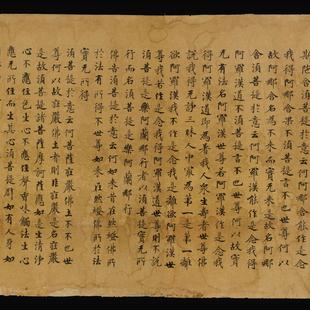 斯陀含須菩提於意云何阿那含能作是念
我得阿那含果不須菩提言不也世尊何以
故阿那含名為不來而實无來是故名阿那
含須菩提於意云何阿羅漢能作是念我得
阿羅漢道不須菩提言不也世尊何以故實
无有法名阿羅漢世尊若阿羅漢作是念我
得阿羅漢道即為著我人眾生壽者世尊佛
說我得无諍三昧人中最為第一是第一離
欲阿羅漢我不作是念我是離欲阿羅漢世
尊我若作是念我得阿羅漢道世尊則不說
須菩提是樂阿蘭那行者以須菩提實无所
行而名須菩提是樂阿蘭那行
佛告須菩提於意云何如來昔在然燈佛所
於法有所得不世尊如來在然燈佛所於法
實无所得
須菩提於意云何菩薩莊嚴佛土不不也世
尊何以故莊嚴佛土者則非莊嚴是名莊嚴
是故須菩提諸菩薩摩訶薩應如是生清淨
心不應住色生心不應住聲香味觸法生心
應无所住而生其心須菩提譬如有人身如